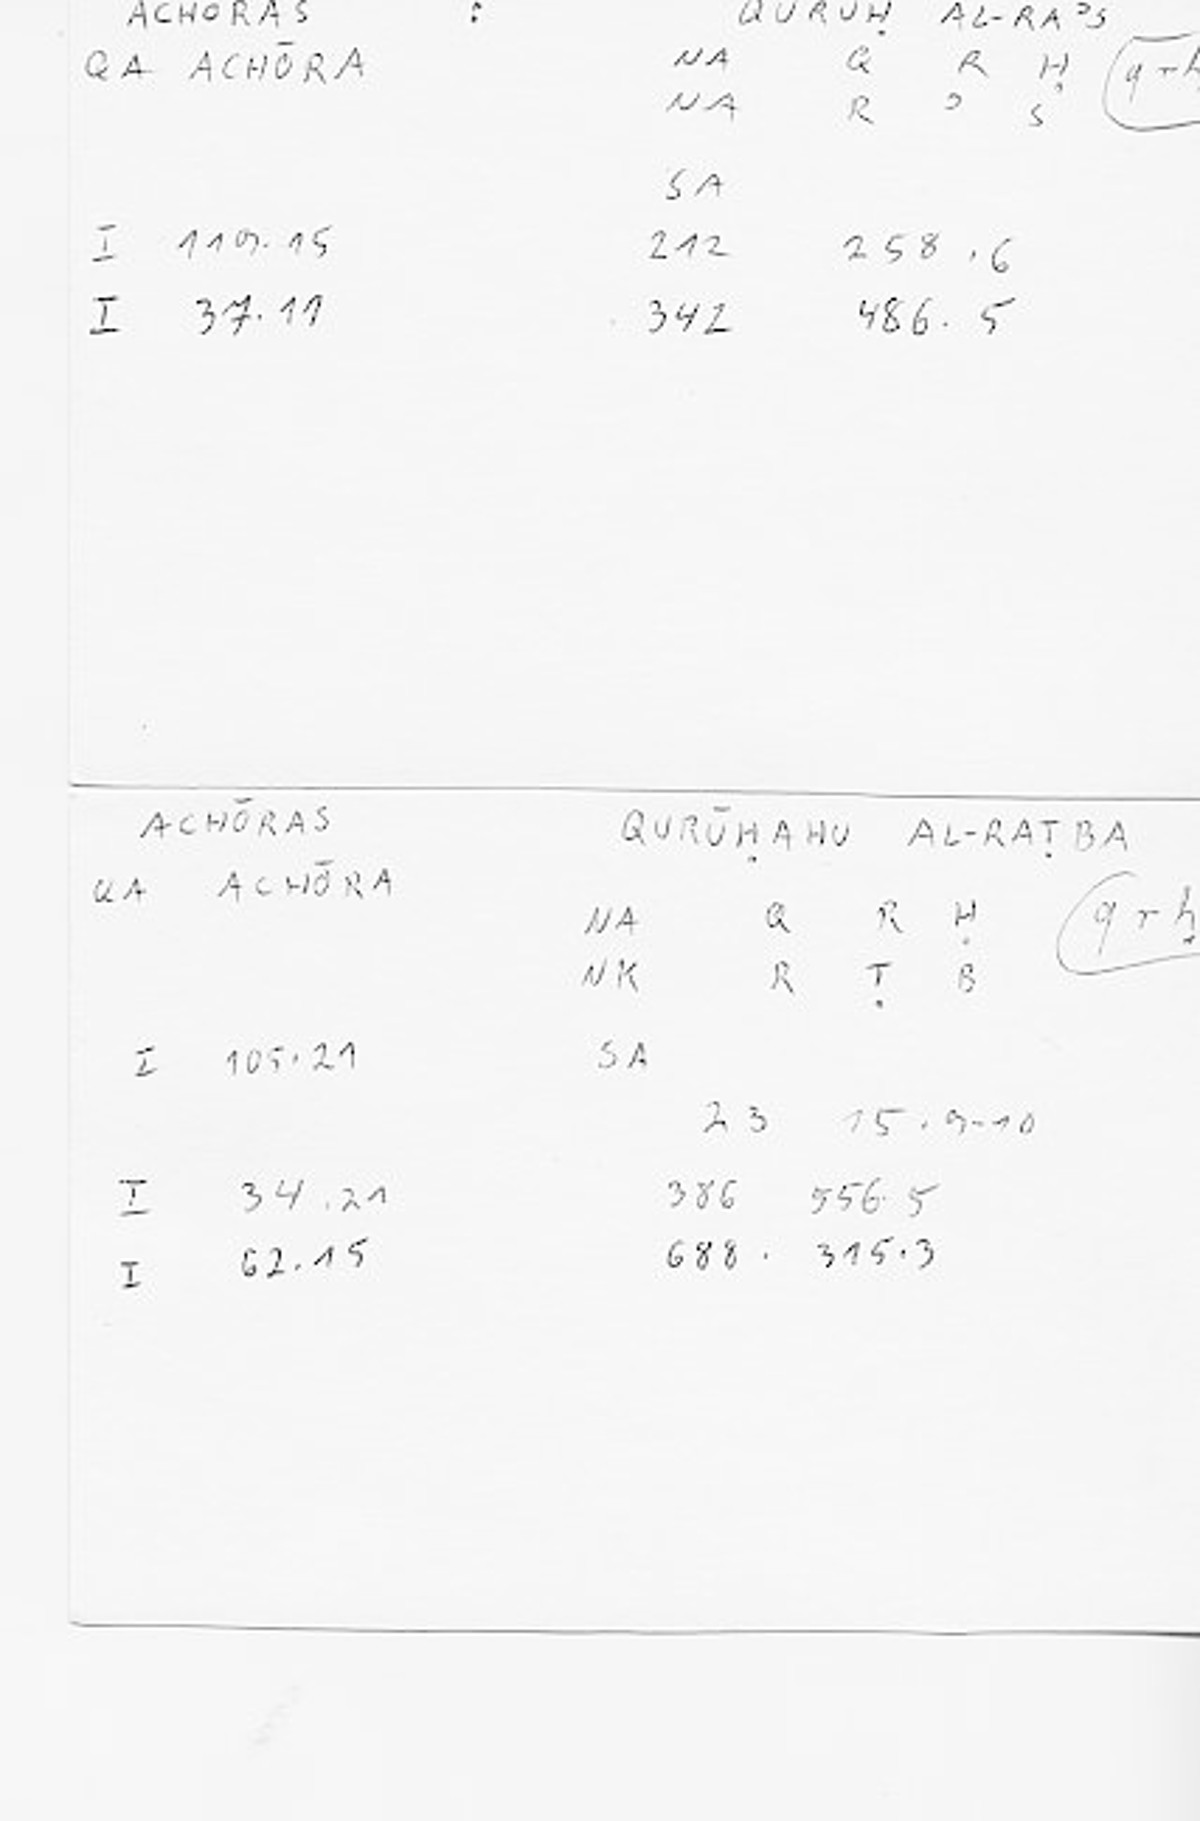 ACHŌRAS : QURŪḤ AL-RAʾS
QA ACHŌRA NA Q R Ḥ
NA R ʾ S
SA
I 119.15 212 258.6
I 37.11 342 486.5
ACHŌRAS QURŪḤAHU AL-RAṬBA
QA ACHŌRA
NA Q R Ḥ qrḥ
NK R Ṭ B
I 105.21 SA
23 15.9-10
I 34.21 386 556.5
I 62.15 688. 315.3